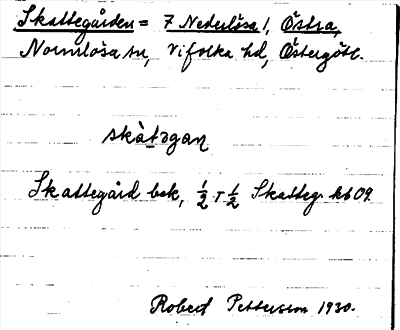 Skattegården = 7 Nederlösa 1, Östra,
Normlösa sn, Vifolka hd, Östergötl.
skàtəgan
Skattegård bek, ½ + ½ Skatteg. kb 09.
Robert Pettersson 1930.